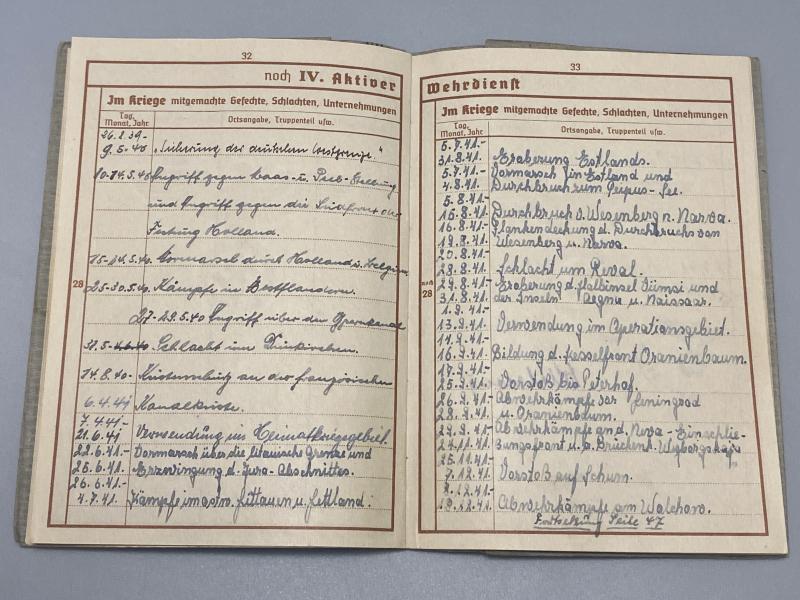 32
noch IV. Aktiver
Im Kriege mitgemachte Gefechte, Schlachten, Unternehmungen
Tag, Monat, Jahr
Ortsangabe, Truppenteil usw.
26.8.39-
9.5.40 „Sicherung der deutschen Westgrenze."
10.-14.5.40 Angriff gegen Maas- u. Peel-Stellung
und Angriff gegen die Südfront der
Festung Holland.
15.-24.5.40 Vormarsch durch Holland u. Belgien
28
25-30.5.40 Kämpfe in Westflandern.
27-29.5.40 Angriff über den Yperkanal
31.5-4.6.40 Schlacht um Dünkirchen.
14.8.40- Küstenschutz an der französischen
6.4.41 Kanalküste.
7.4.41-
21.6.41 Verwendung im Heimatkriegsgebiet.
22.6.41- Vormarsch über die litauische Grenze und
25.6.41- Erzwingung d. Jura-Abschnittes.
26.6.41-
4.7.41. Kämpfe im Littauen u. Lettland.
33
Wehrdienst
Im Kriege mitgemachte Gefechte, Schlachten, Unternehmungen
Tag, Monat, Jahr
Ortsangabe, Truppenteil usw.
5.7.41.-
31.8.41- Eroberung Estlands.
5.7.41- Vormarsch in Estland und
4.8.41- Durchbruch zum Peipus-See.
5.8.41-
15.8.41- Durchbruch ü. Wesenberg n. Narwa.
16.8.41- Flankendeckung d. Durchbruchs von
19.8.41- Wesenberg u. Narwa.
20.8.41-
28.8.41- Schlacht um Reval.
noch 28
29.8.41- Eroberung d. Halbinsel Sümsi und
31.8.41- der Inseln Aegna u. Naissaar.
1.9.41-
13.9.41- Verwendung im Operationsgebiet.
14.9.41-
16.9.41- Bildung d. Kesselfront Oranienbaum.
17.9.41-
25.9.41- Vorstoß bis Peterhof.
26.9.41- Abwehrkämpfe vor Leningrad
28.9.41- u. Oranienbaum.
29.9.41- Abwehrkämpfe an d. Newa-Einschlie-
24.11.41- ßungsfront u. a. Brückenk. Wyborgskaja
25.11.41-
7.12.41- Vorstoß auf Schum.
8.12.41-
Abwehrkämpfe am Wolchow.
Fortsetzung Seite 47